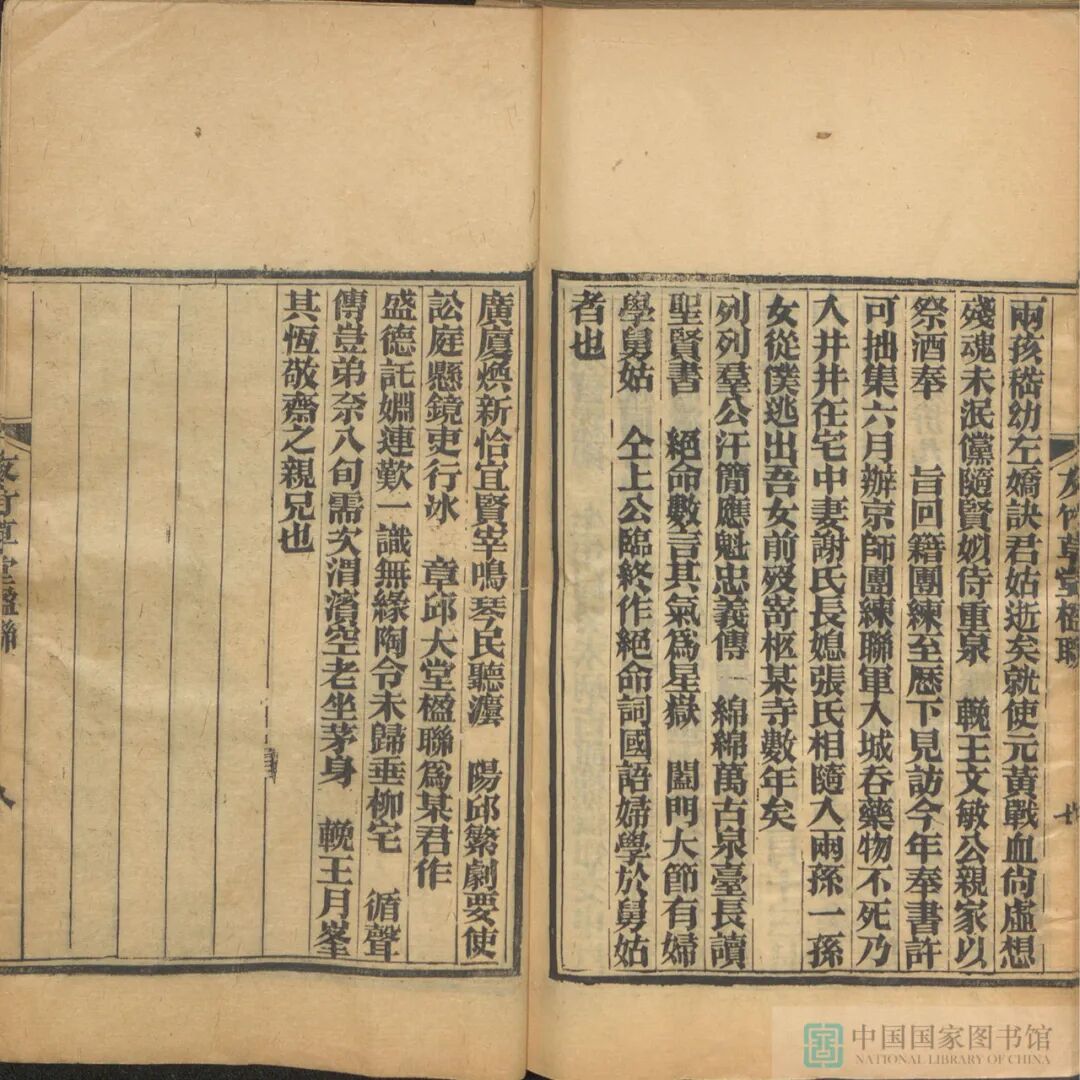 兩孩嵇幼左嬌訣君姑逝矣就使元黃戰血尙虛想
殘魂未泯儻隨賢姒侍重泉 輓王文敏公親家以
祭酒奉 旨回籍團練至歷下見訪今年奉書許
可拙集六月辦京師團練聯軍入城吞藥物不死乃
入井井在住宅中妻謝氏長媳張氏相隨入兩孫一孫
女從僕逃出吾女前歿寄柩某寺數年矣
列列羣公汗簡應魁忠義傳 綿綿萬古泉臺長讀
聖賢書 絕命數言其氣爲星嶽 闔門大節有婦
學舅姑 仝上公臨終作絕命詞國語婦學於舅姑
者也
友竹草堂楹聯
廣廈煥新恰宜賢宰鳴琴民聽瀍 陽邱繁劇要使
訟庭懸鏡吏行冰 章邱大堂楹聯爲某君作
盛德託婣連歎一識無緣陶令未歸垂柳宅 循聲
傳豈弟奈八旬需次渭濱空老坐茅身 輓王月峯
其恆敬齋之親兄也
友竹草堂楹聯
八
中国国家图书馆
NATIONAL LIBRARY OF CHINA